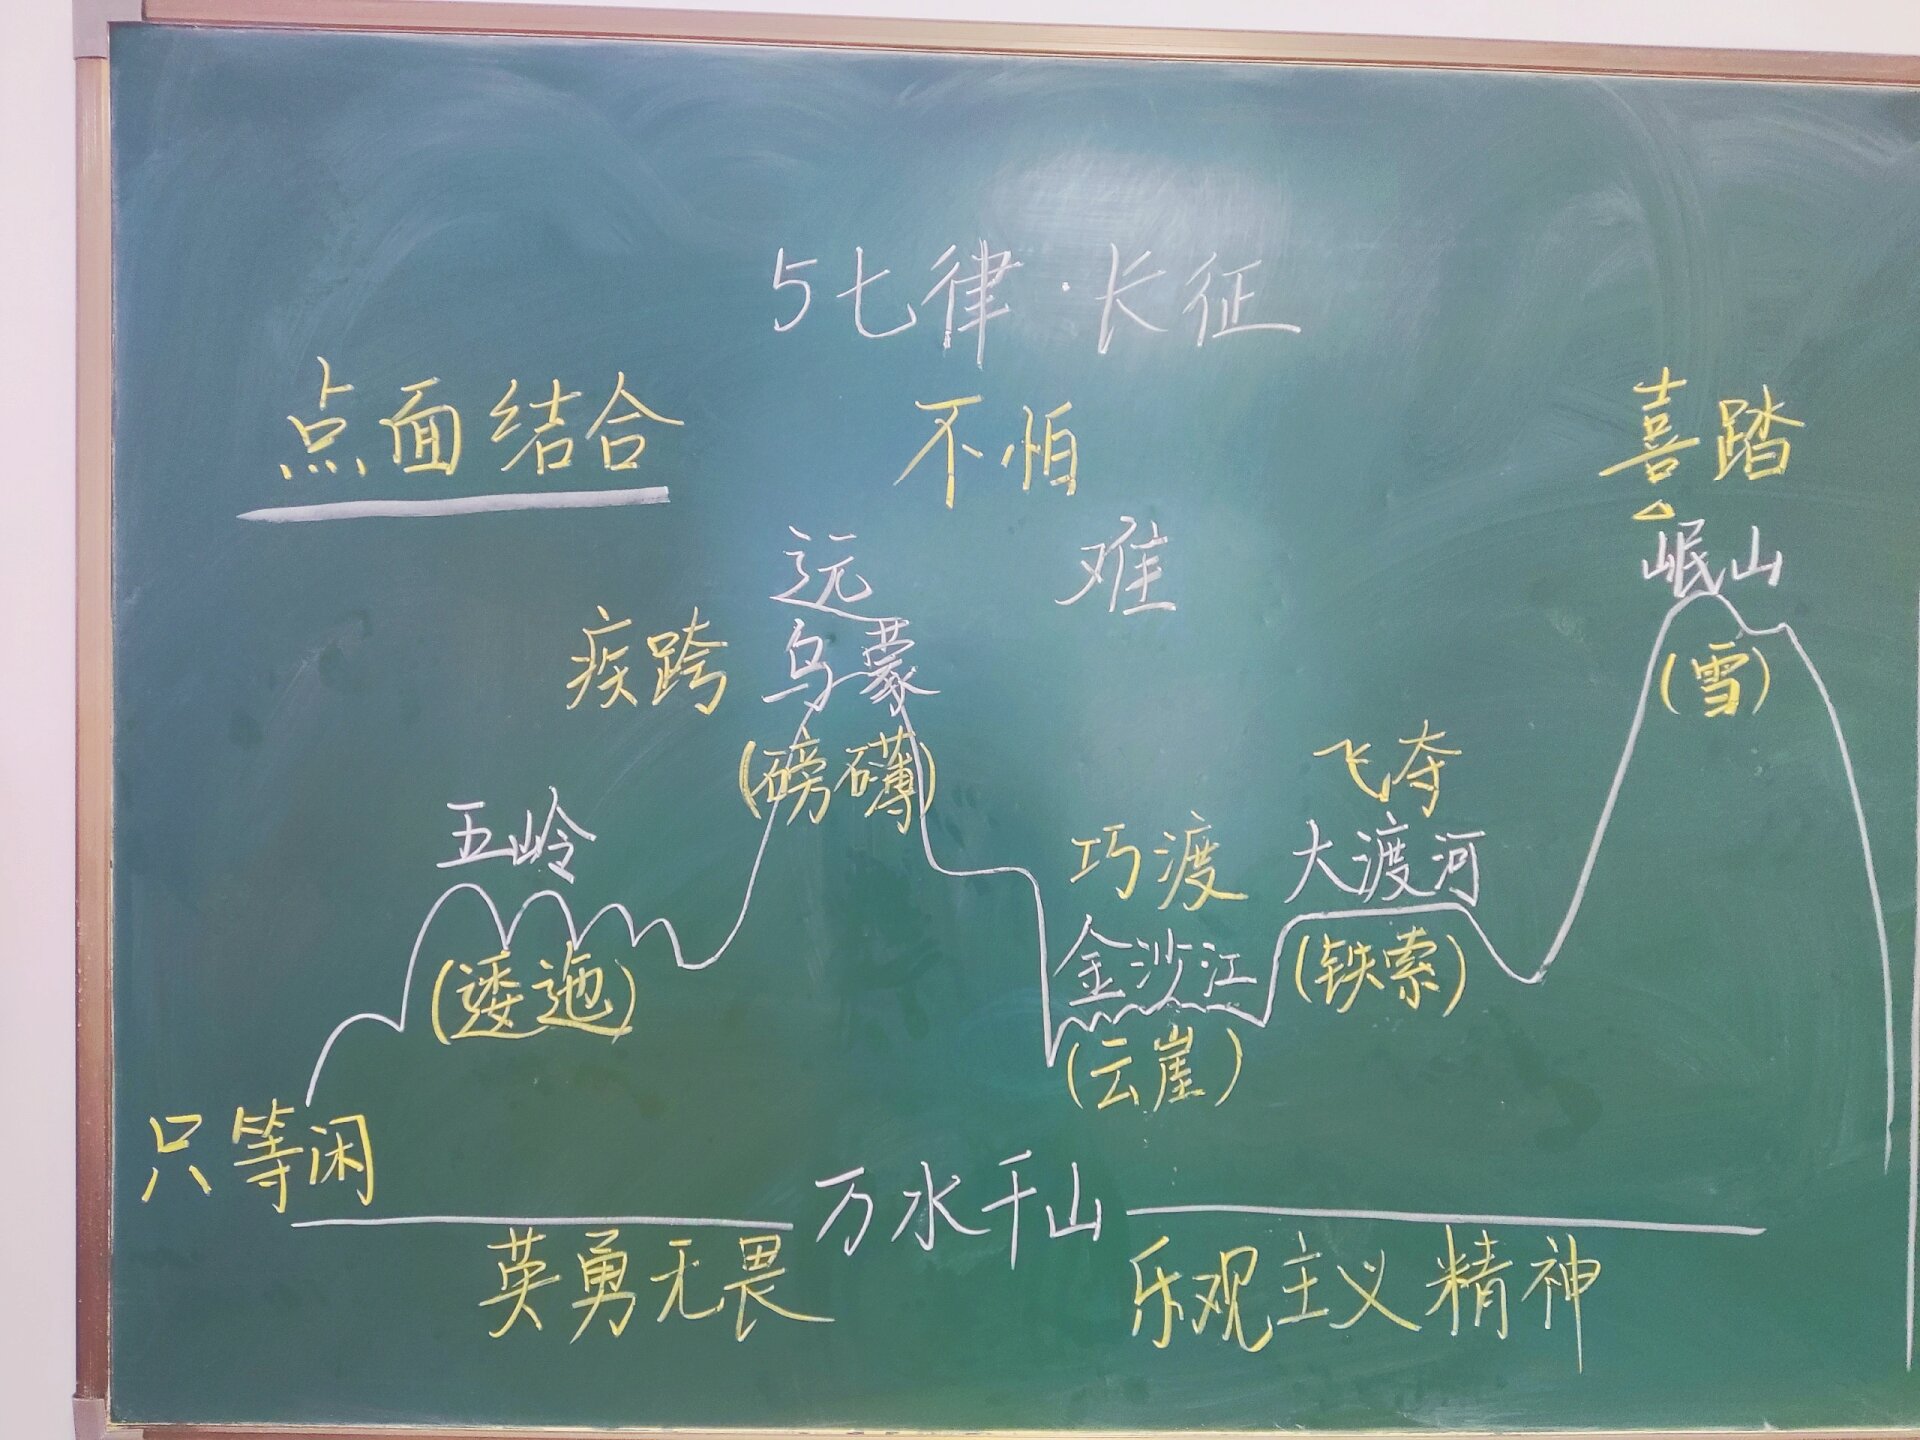 5 七律·长征
点面结合
不怕
喜踏
远 难
岷山
疾跨 乌蒙
(雪)
(磅礴)
飞夺
五岭
巧渡 大渡河
金沙江
(逶迤)
(铁索)
(云崖)
只等闲
万水千山
英勇无畏
乐观主义精神